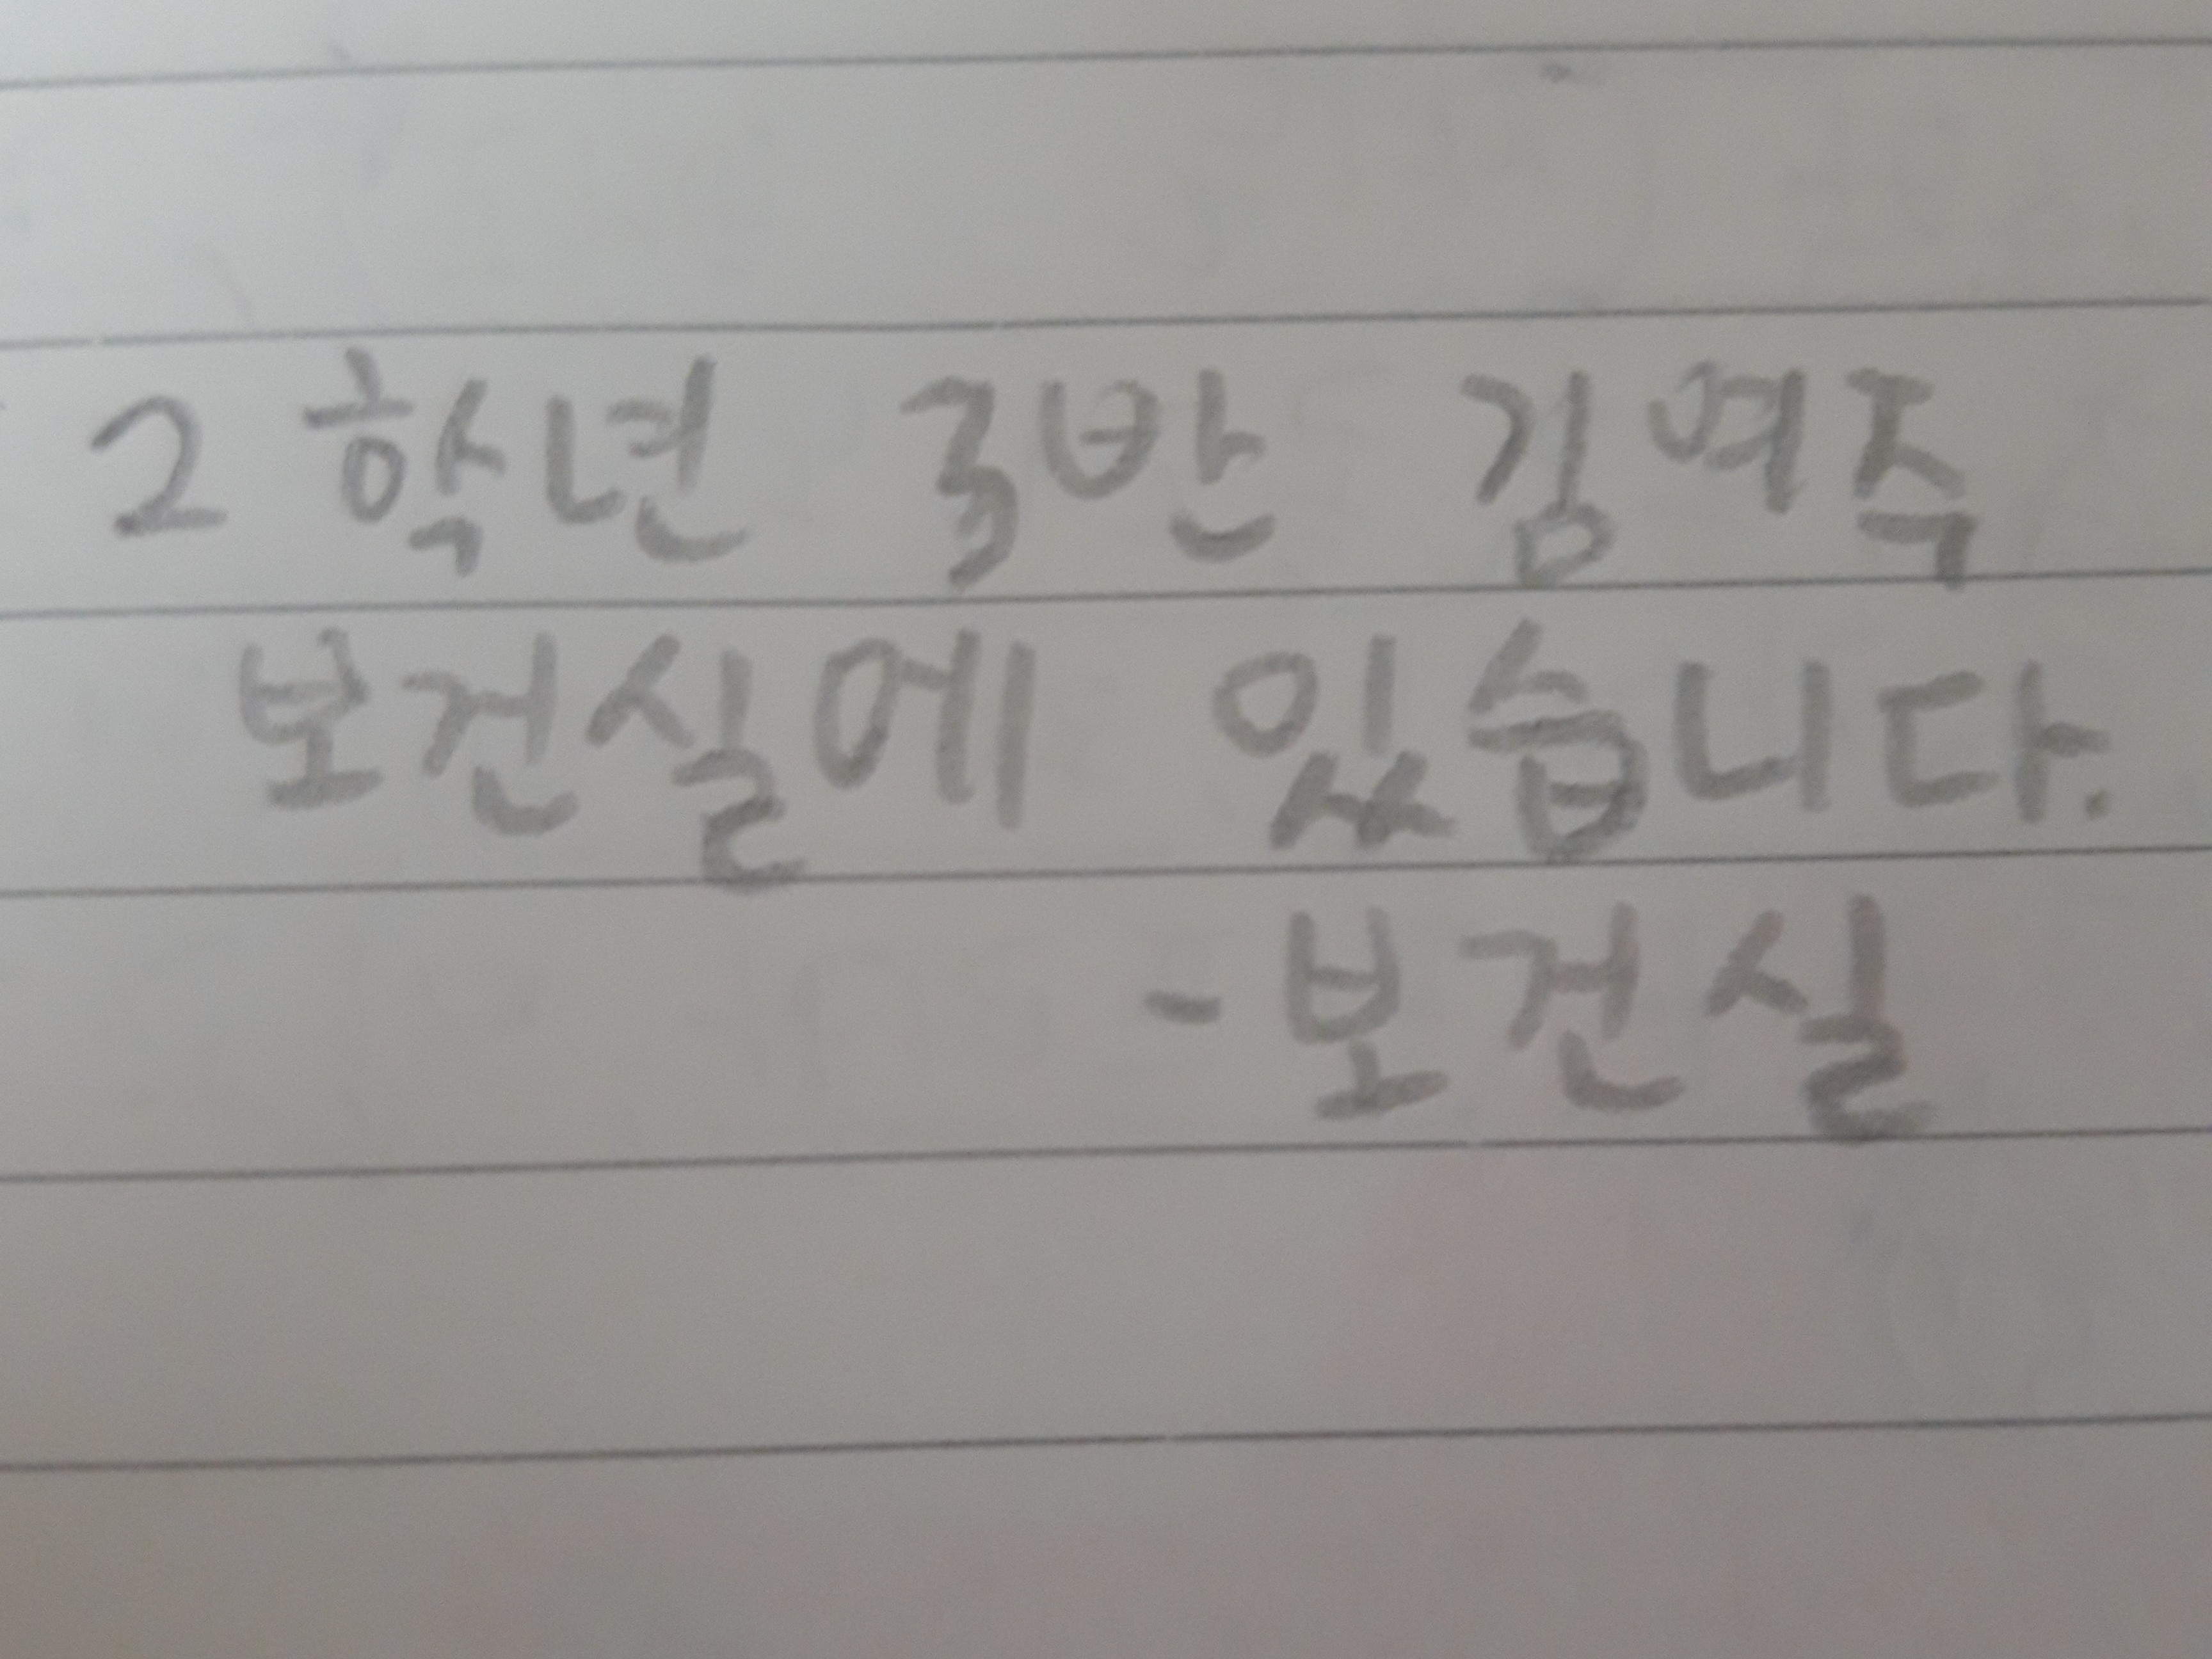 2학년 3반 김여주
보건실에 있습니다.
-보건실